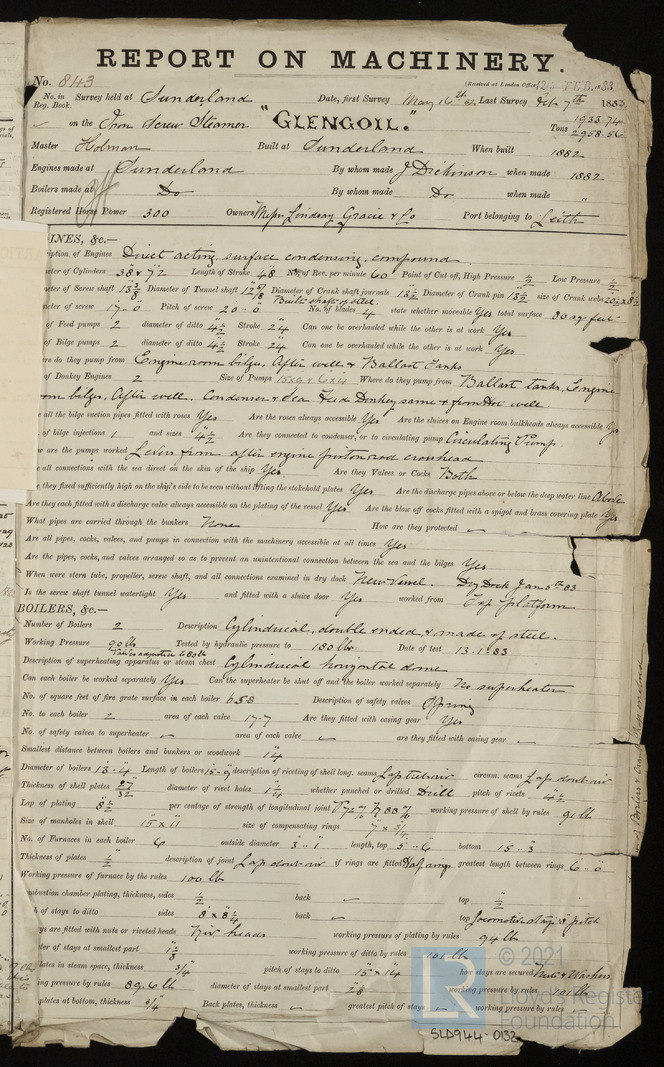 REPORT ON MACHINERY.
No. 843
(Received at London Office 12th FEB. 83
No. in Reg. Book. Survey held at Sunderland Date, first Survey May 16th 82 Last Survey Feb 7th 1883
on the Iron Screw Steamer "GLENGOIL." Tons 1933.74 2958.56
Master Holman Built at Sunderland When built 1882
Engines made at Sunderland By whom made J. Dickinson when made 1882
Boilers made at Do By whom made Do when made "
Registered Horse Power 300 Owners Messrs Lindsay Gracie & Co Port belonging to Leith
INES, &c.—
ription of Engines Direct acting, surface condensing, compound
eter of Cylinders 38" & 72" Length of Stroke 48" No. of Rev. per minute 60 Point of Cut off, High Pressure 1/2 Low Pressure 1/2
eter of Screw shaft 13 3/8 Diameter of Tunnel shaft Diameter of Crank shaft journals 13 1/2 Diameter of Crank pin 13 1/2 size of Crank webs
Built shaft of steel
meter of screw 17-0 Pitch of screw 20-0 No. of blades 4 state whether moveable Yes total surface 80 sq feet
of Feed pumps 2 diameter of ditto 4 1/2 Stroke 24" Can one be overhauled while the other is at work Yes
of Bilge pumps 2 diameter of ditto 4 1/2 Stroke 24" Can one be overhauled while the other is at work Yes
re do they pump from Engine room bilges, After well & Ballast Tanks
of Donkey Engines 2 Size of Pumps Where do they pump from Ballast tanks, Engine
om bilges, After well, Condenser & Sea Feed Donkey same & from Hot well.
e all the bilge suction pipes fitted with roses Yes Are the roses always accessible Yes Are the sluices on Engine room bulkheads always accessible Yes
of bilge injections 1 and sizes 4 1/2 Are they connected to condenser, or to circulating pump Circulating Pump
w are the pumps worked Levers from after engine piston rod crosshead
e all connections with the sea direct on the skin of the ship Yes Are they Valves or Cocks Both
e they fixed sufficiently high on the ship's side to be seen without lifting the stokehold plates Yes Are the discharge pipes above or below the deep water line Above
Are they each fitted with a discharge valve always accessible on the plating of the vessel Yes Are the blow off cocks fitted with a spigot and brass covering plate Yes
What pipes are carried through the bunkers None How are they protected ✓
Are all pipes, cocks, valves, and pumps in connection with the machinery accessible at all times Yes
Are the pipes, cocks, and valves arranged so as to prevent an unintentional connection between the sea and the bilges Yes
When were stern tube, propeller, screw shaft, and all connections examined in dry dock New Vessel. Dry Dock Jan 5th 83
Is the screw shaft tunnel watertight Yes and fitted with a sluice door Yes worked from Top platform
BOILERS, &c.—
Number of Boilers 2 Description Cylindrical, double ended, & made of steel.
Working Pressure 90 lb Tested by hydraulic pressure to 180 lbs Date of test 13.1.83
Description of superheating apparatus or steam chest Cylindrical horizontal dome
Can each boiler be worked separately Yes Can the superheater be shut off and the boiler worked separately No superheater
No. of square feet of fire grate surface in each boiler Description of safety valves Spring
No. to each boiler 2 area of each valve 17.7 Are they fitted with easing gear Yes
No. of safety valves to superheater ✓ area of each valve ✓ are they fitted with easing gear ✓
Smallest distance between boilers and bunkers or woodwork 14"
Diameter of boilers 13-4 Length of boilers 15-9 description of riveting of shell long. seams circum. seams Lap double riv
Thickness of shell plates 27/32 diameter of rivet holes 1 1/4 whether punched or drilled Drill pitch of rivets 4 3/4
Lap of plating 8 1/2 per centage of strength of longitudinal joint working pressure of shell by rules 91 lb
Size of manholes in shell 15" x 11" size of compensating rings 7 x 3/4
No. of Furnaces in each boiler 6 outside diameter 3-1 length, top 5-6 bottom 15-3
Thickness of plates 1/2 description of joint Lap double riv if rings are fitted Half rings greatest length between rings 6-0
Working pressure of furnace by the rules 100 lb
mbustion chamber plating, thickness, sides 1/2 back ✓ top 1/2
h of stays to ditto sides 8" x 8 1/4" back ✓ top locomotive stays 8" pitch
ays are fitted with nuts or riveted heads Riv heads working pressure of plating by rules 94 lb
ter of stays at smallest part 1 1/8 working pressure of ditto by rules 101 lb
lates in steam space, thickness 3/4 pitch of stays to ditto 15" x 14" how stays are secured Nuts & Washers
ing pressure by rules 89.6 lb diameter of stays at smallest part working pressure by rules 101 lb
plates at bottom, thickness 3/4 Back plates, thickness ✓ greatest pitch of stays ✓ working pressure by rules
© 2021
Lloyd's Register
Foundation
SLD944-0132